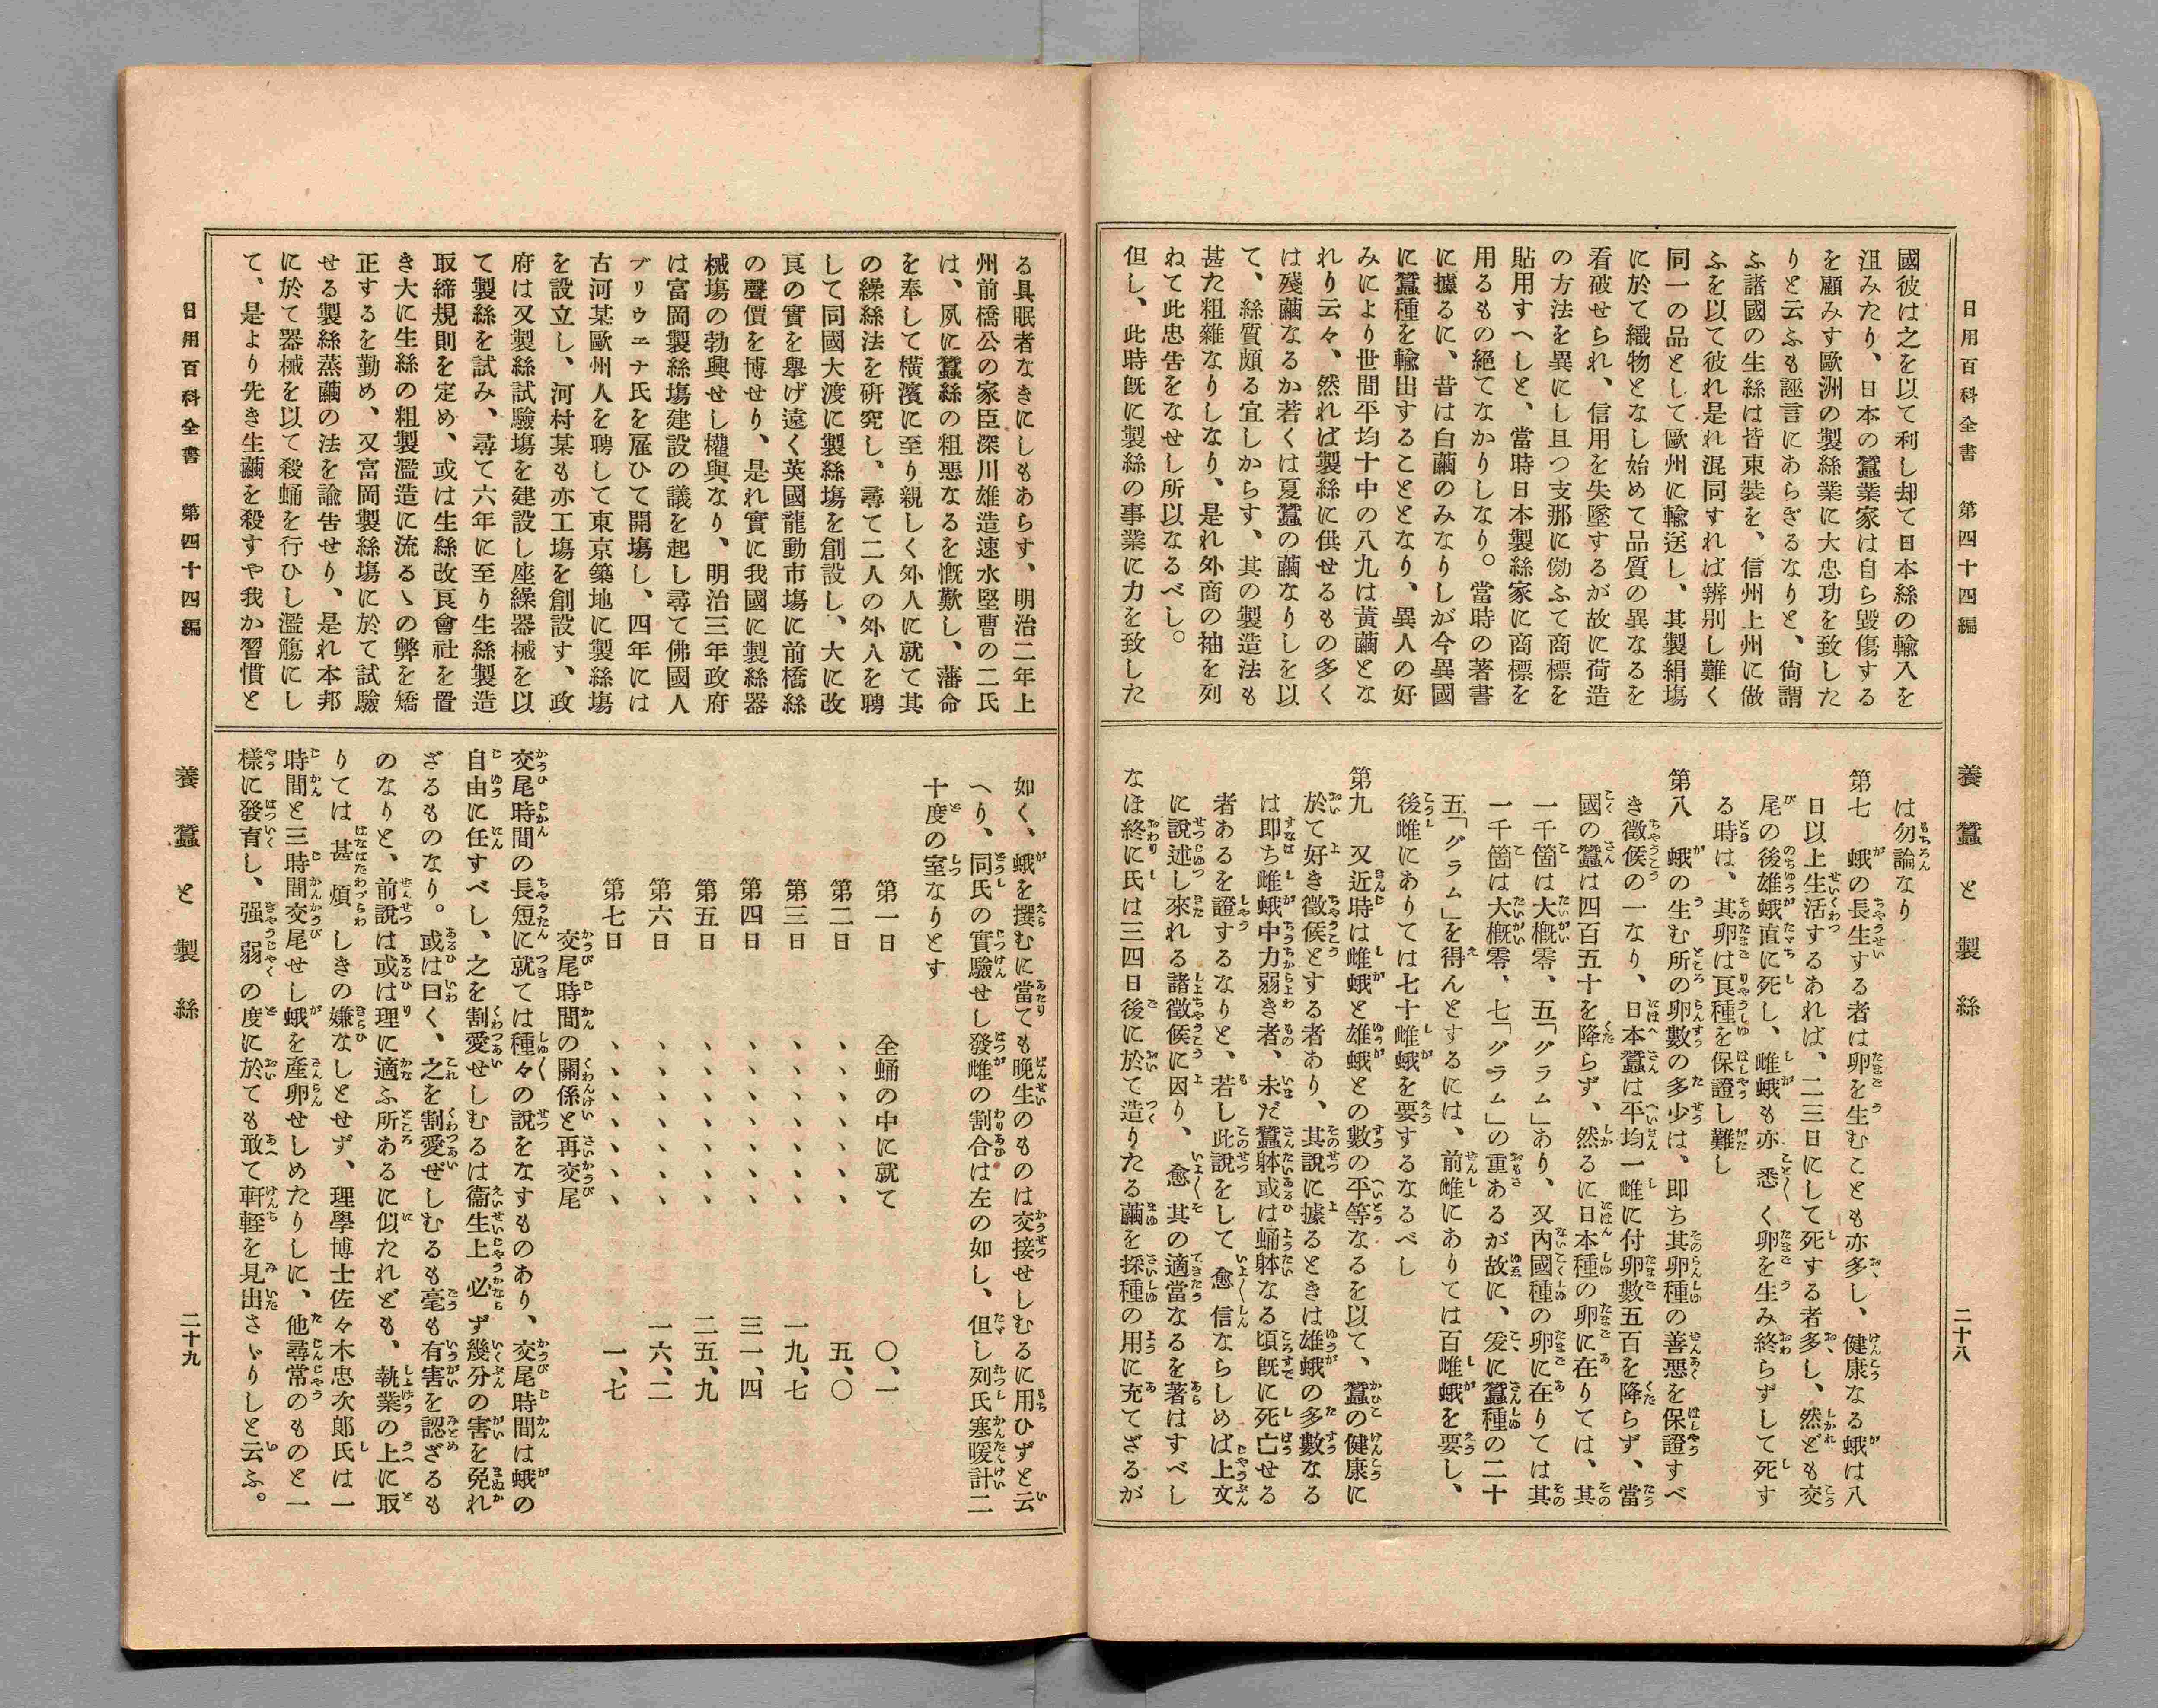 日用百科全書 第四十四編
養蠶と製絲
二十八
國彼は之を以て利し却て日本絲の輸入を
沮みたり、日本の蠶業家は自ら毀傷する
を顧みす歐洲の製絲業に大忠功を致した
りと云ふも誣言にあらざるなりと、尙謂
ふ諸國の生絲は皆束裝を、信州上州に做
ふを以て彼れ是れ混同すれば辨別し難く
同一の品として歐州に輸送し、其製絹塲
に於て織物となし始めて品質の異なるを
看破せられ、信用を失墜するが故に荷造
の方法を異にし且つ支那に傚ふて商標を
貼用すへしと、當時日本製絲家に商標を
用るもの絕てなかりしなり。當時の著書
に據るに、昔は白繭のみなりしが今異國
に蠶種を輸出することとなり、異人の好
みにより世間平均十中の八九は黃繭とな
れり云々、然れば製絲に供せるもの多く
は殘繭なるか若くは夏蠶の繭なりしを以
て、絲質頗る宜しからす、其の製造法も
甚た粗雜なりしなり、是れ外商の袖を列
ねて此忠告をなせし所以なるべし。
但し、此時旣に製絲の事業に力を致した
は勿論なり
第七 蛾の長生する者は卵を生むことも亦多し、健康なる蛾は八
日以上生活するあれば、二三日にして死する者多し、然ども交
尾の後雄蛾直に死し、雌蛾も亦悉く卵を生み終らずして死す
る時は、其卵は良種を保證し難し
第八 蛾の生む所の卵數の多少は、即ち其卵種の善惡を保證すべ
き徵候の一なり、日本蠶は平均一雌に付卵數五百を降らず、當
國の蠶は四百五十を降らず、然るに日本種の卵に在りては、其
一千箇は大槪零、五「グラム」あり、又內國種の卵に在りては其
一千箇は大槪零、七「グラム」の重あるが故に、爰に蠶種の二十
五「グラム」を得んとするには、前雌にありては百雌蛾を要し、
後雌にありては七十雌蛾を要するなるべし
第九 又近時は雌蛾と雄蛾との數の平等なるを以て、蠶の健康に
於て好き徵候とする者あり、其說に據るときは雄蛾の多數なる
は即ち雌蛾中力弱き者、未だ蠶躰或は蛹躰なる頃旣に死亡せる
者あるを證するなりと、若し此說をして愈信ならしめば上文
に說述し來れる諸徵候に因り、愈其の適當なるを著はすべし
なほ終に氏は三四日後に於て造りたる繭を採種の用に充てざるが
る具眼者なきにしもあらす、明治二年上
州前橋公の家臣深川雄造速水堅曹の二氏
は、夙に蠶絲の粗惡なるを慨歎し、藩命
を奉して橫濱に至り親しく外人に就て其
の繰絲法を硏究し、尋て二人の外人を聘
して同國大渡に製絲塲を創設し、大に改
良の實を擧げ遠く英國龍動市塲に前橋絲
の聲價を博せり、是れ實に我國に製絲器
械塲の勃興せし權輿なり、明治三年政府
は富岡製絲塲建設の議を起し尋て佛國人
ブリウエナ氏を雇ひて開塲し、四年には
古河某歐州人を聘して東京築地に製絲塲
を設立し、河村某も亦工塲を創設す、政
府は又製絲試驗塲を建設し座繰器械を以
て製絲を試み、尋て六年に至り生絲製造
取締規則を定め、或は生絲改良會社を置
き大に生絲の粗製濫造に流るゝの弊を矯
正するを勤め、又富岡製絲塲に於て試驗
せる製絲蒸繭の法を諭告せり、是れ本邦
に於て器械を以て殺蛹を行ひし濫觴にし
て、是より先き生繭を殺すや我か習慣と
如く、蛾を撰むに當ても晚生のものは交接せしむるに用ひずと云
へり、同氏の實驗せし發雌の割合は左の如し、但し列氏寒暖計二
十度の室なりとす
第一日 全蛹の中に就て 〇、一
第二日 、、、、、、、 五、〇
第三日 、、、、、、、 一九、七
第四日 、、、、、、、 三一、四
第五日 、、、、、、、 二五、九
第六日 、、、、、、、 一六、二
第七日 、、、、、、、 一、七
交尾時間の關係と再交尾
交尾時間の長短に就ては種々の說をなすものあり、交尾時間は蛾の
自由に任すべし、之を割愛せしむるは衞生上必ず幾分の害を免れ
ざるものなり。或は曰く、之を割愛ぜしむるも毫も有害を認ざるも
のなりと、前說は或は理に適ふ所あるに似たれども、執業の上に取
りては甚煩しきの嫌なしとせず、理學博士佐々木忠次郞氏は一
時間と三時間交尾せし蛾を產卵せしめたりしに、他尋常のものと一
樣に發育し、强弱の度に於ても敢て軒輊を見出さゞりしと云ふ。
日用百科全書 第四十四編
養蠶と製絲
二十九